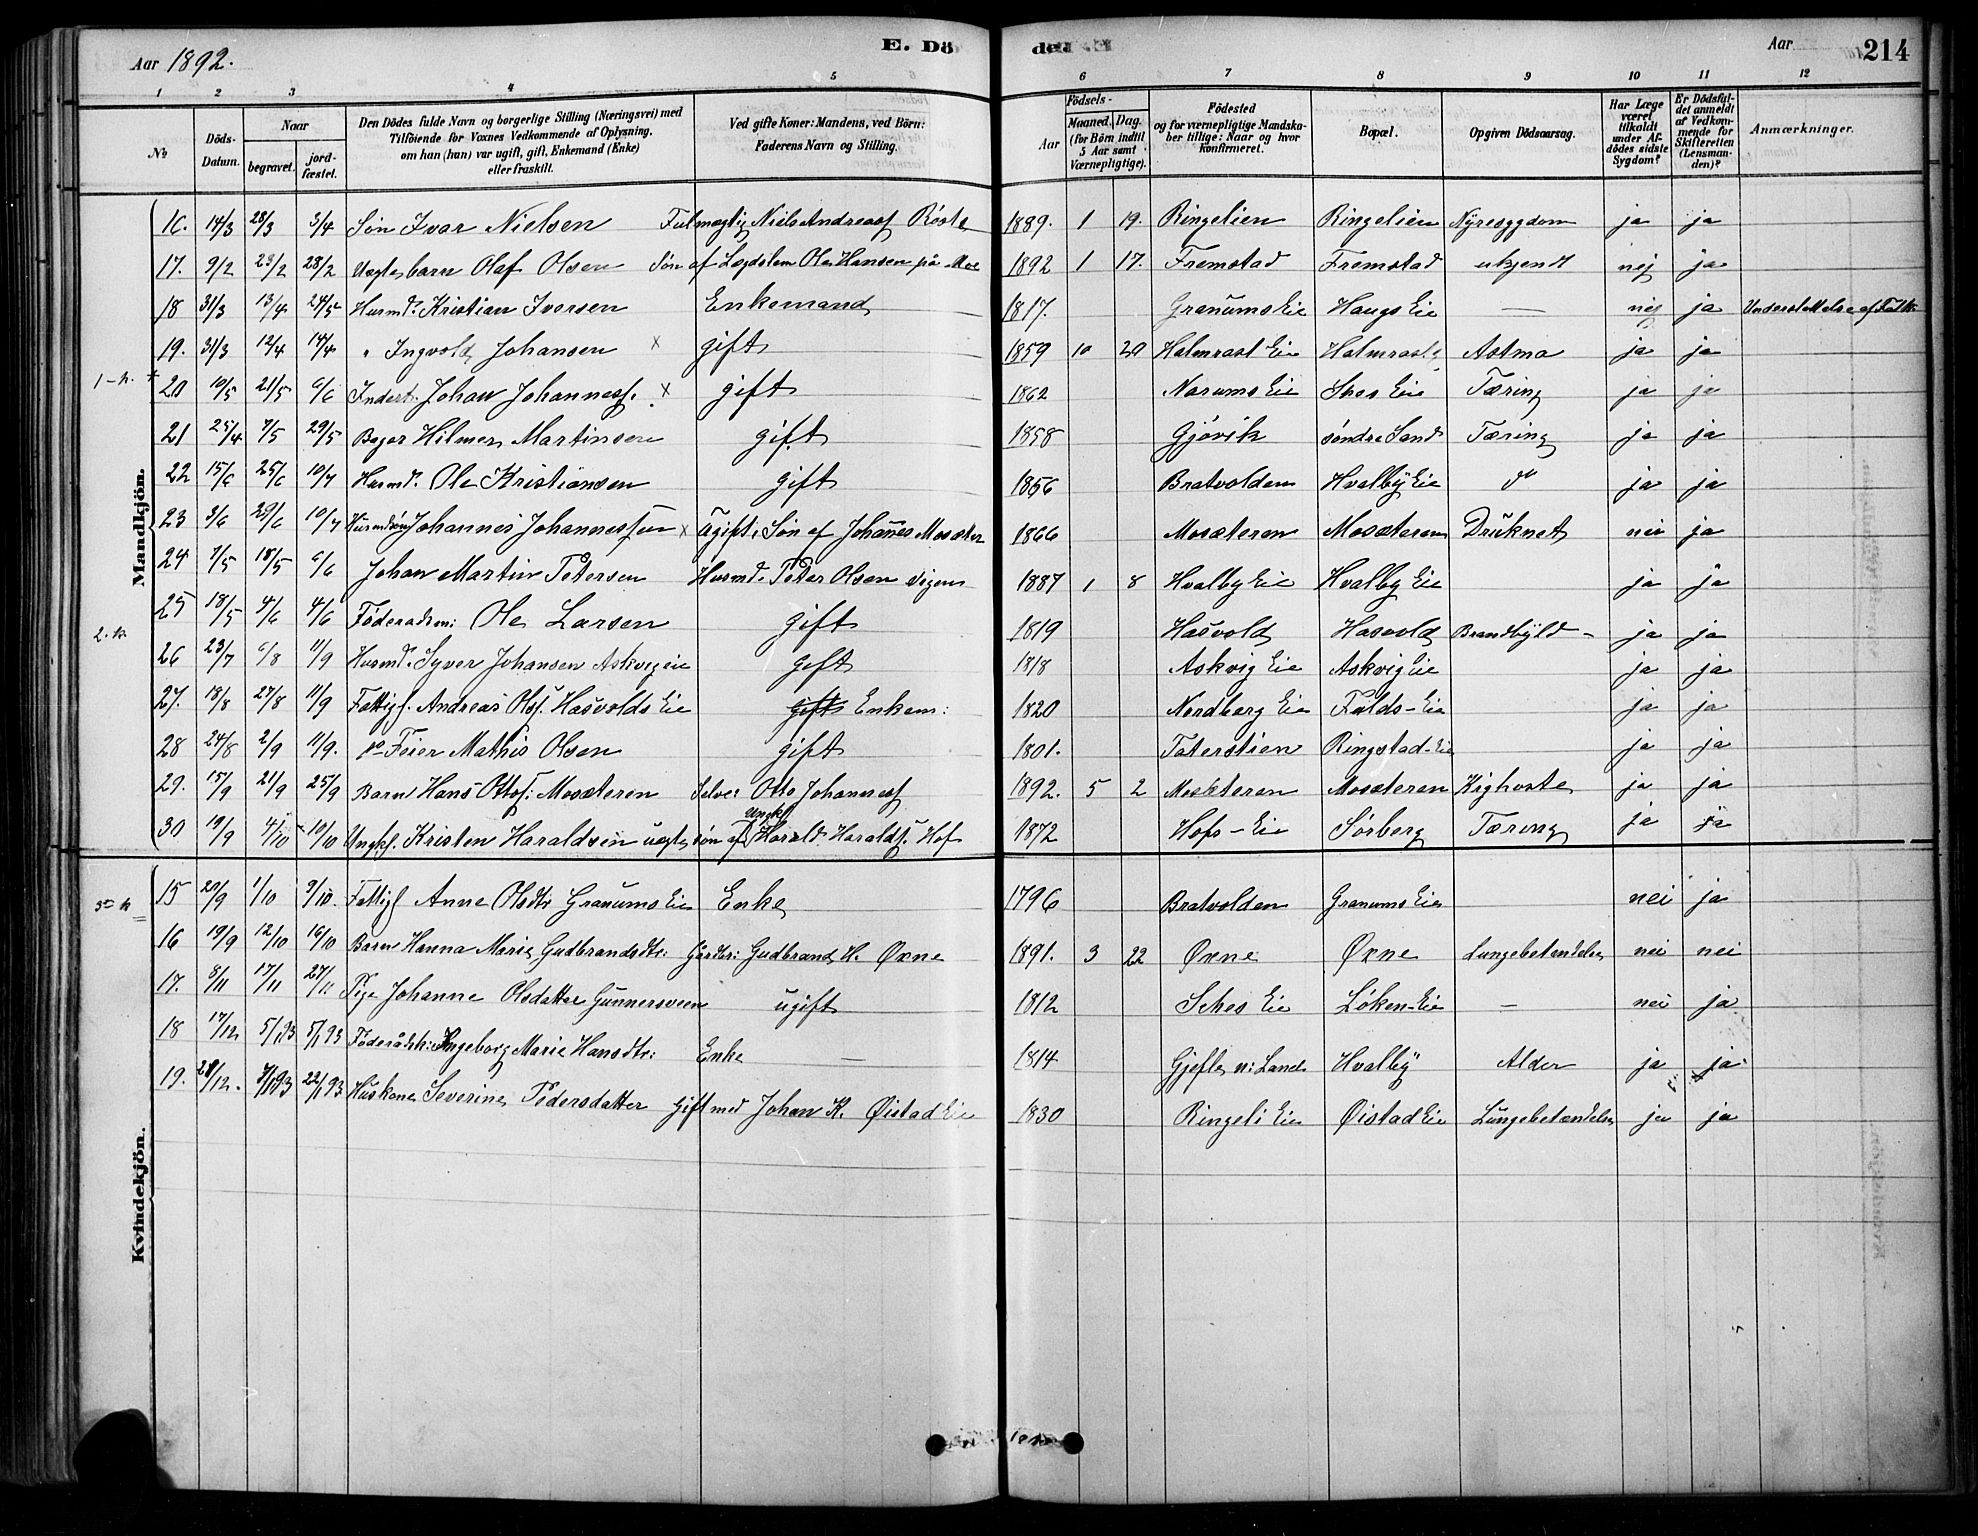 Aar 1892. E. Dö den Aar 214
1 2 3 4 5 6 7 8 9 10 11 12
No
Döds-Datum.
Naar
begravet.
jordfæstet.
Den Dödes fulde Navn og borgerlige Stilling (Næringsvei) med
Tilföiende for Voxnes Vedkommende af Oplysning,
om han (hun) var ugift, gift, Enkemand (Enke)
eller fraskilt.
Ved gifte Koner: Mandens, ved Börn:
Faderens Navn og Stilling.
Födsels-
Aar
Maaned. Dag.
(for Börn indtil
5 Aar samt
Værnepligtige).
Födested
og for værnepligtige Mandskaber tillige: Naar og hvor
konfirmeret.
Bopæl.
Opgiven Dödsaarsag.
Har Læge
været
tilkaldt
under Afdödes sidste
Sygdom?
Er Dödsfaldet anmeldt
af Vedkommende for
Skifteretten
(Lensmanden)?
Anmærkninger.
Mandkjön.
16. 14/3 28/3 3/4 Søn Ivar Nielsen Fulmægtig Niels Andreasf Røste 1889. 1 19. Ringelien Ringelien Nyresygdom ja ja
17. 9/2 23/2 28/2 Uægte barn Olaf Olsen Søn af Ole Hansen på Moe 1892 1 17. Fremstad Fremstad ukjendt nej ja
18 31/3 13/4 24/5 Husmd. Kristian Iversen Enkemand 1817. Granums Eie Haugs Eie — nej ja Understøttelse af
19. 31/3 12/4 14/4 " Ingvold Johansen x gift 1859 10 20 Halmrast Eie Halmrast Astma ja ja
1-h. + 20 10/5 21/5 6/6 Inderst. Johan Johannesf. x gift 1862 Narums Eie Sches Eie Tæring ja ja
21 25/4 7/5 29/5 Bager Hilmer Martinsen gift 1858 Gjøvik søndre Land Tæring ja ja
22 15/6 25/6 10/7 Husmd. Ole Kristiansen gift 1856 Bratvolden Hvalby Eie do ja ja
23 3/6 29/6 10/7 Husmdsøn Johannes Johannessen x Ugift, Søn af Johanes Mosæter 1866 Mosæteren Mosæteren Druknet nei ja
24 7/5 18/5 6/6 Johan Martin Petersen Husmd. Peter Olsen 1887 1 8 Hvalby Eie Hvalby Eie ja ja
2.h. 25 18/5 4/6 4/6 Føderadsm: Ole Larsen gift 1819 Hasvold Hasvold Brandbyld - ja ja
26 23/7 6/8 11/9 Husmd. Syver Johansen Askvigeie gift 1818 Askvig Eie Askvig Eie ja ja
27. 18/8 27/8 11/9 Fattigl. Andreas Olsf. Hasvolds Eie gift Enkem: 1820 Nordberg Eie Falds-Eie ja ja
28 24/8 2/9 11/9. do Feier Mathis Olsen gift 1801. Taterstien Ringstad-Eie ja ja
29. 15/9 21/9 25/9 Barn Hans Ottosf: Mosæteren Selver Otto Johannesf 1892. 5 2 Mosæteren Mosæteren Kighoste ja ja
30 19/9 4/10 10/10 Ungkl. Kristen Haraldsen uægte søn af Ungkf Harald Haraldsf. Hof 1872 Hofs-Eie Sørberg Tæring ja ja
Kvindekjön.
3die h 15 20/9 1/10 9/10. Fattigl Anne Olsdtr Granums Eie Enke 1796 Bratvolden Granums Eie nei ja
16 19/9 12/10 16/10 Barn Hanna Marie Gudbrandsdtr: Gårdbr: Gudbrand H. Øxne 1891. 3 22 Øxne Øxne Lungebetændelse nei nei
17. 8/11 17/11 27/11 Pige Johanne Olsdatter Gunnersveen ugift 1812 Sches Eie Løken-Eie — nei ja
18 17/12 5/1 93 8/1 93 Føderådsk: Ingeborg Marie Hansdtr: Enke — 1814 Gjefle n: Land Hvalby Alder ja ja
19. 28/12. 7/1 93 22/1 93 Huskone Severine Pedersdatter Gift med Johan K. Øistad Eie 1830 Ringeli Eie Øistad Eie Lungebetændelse ja ja